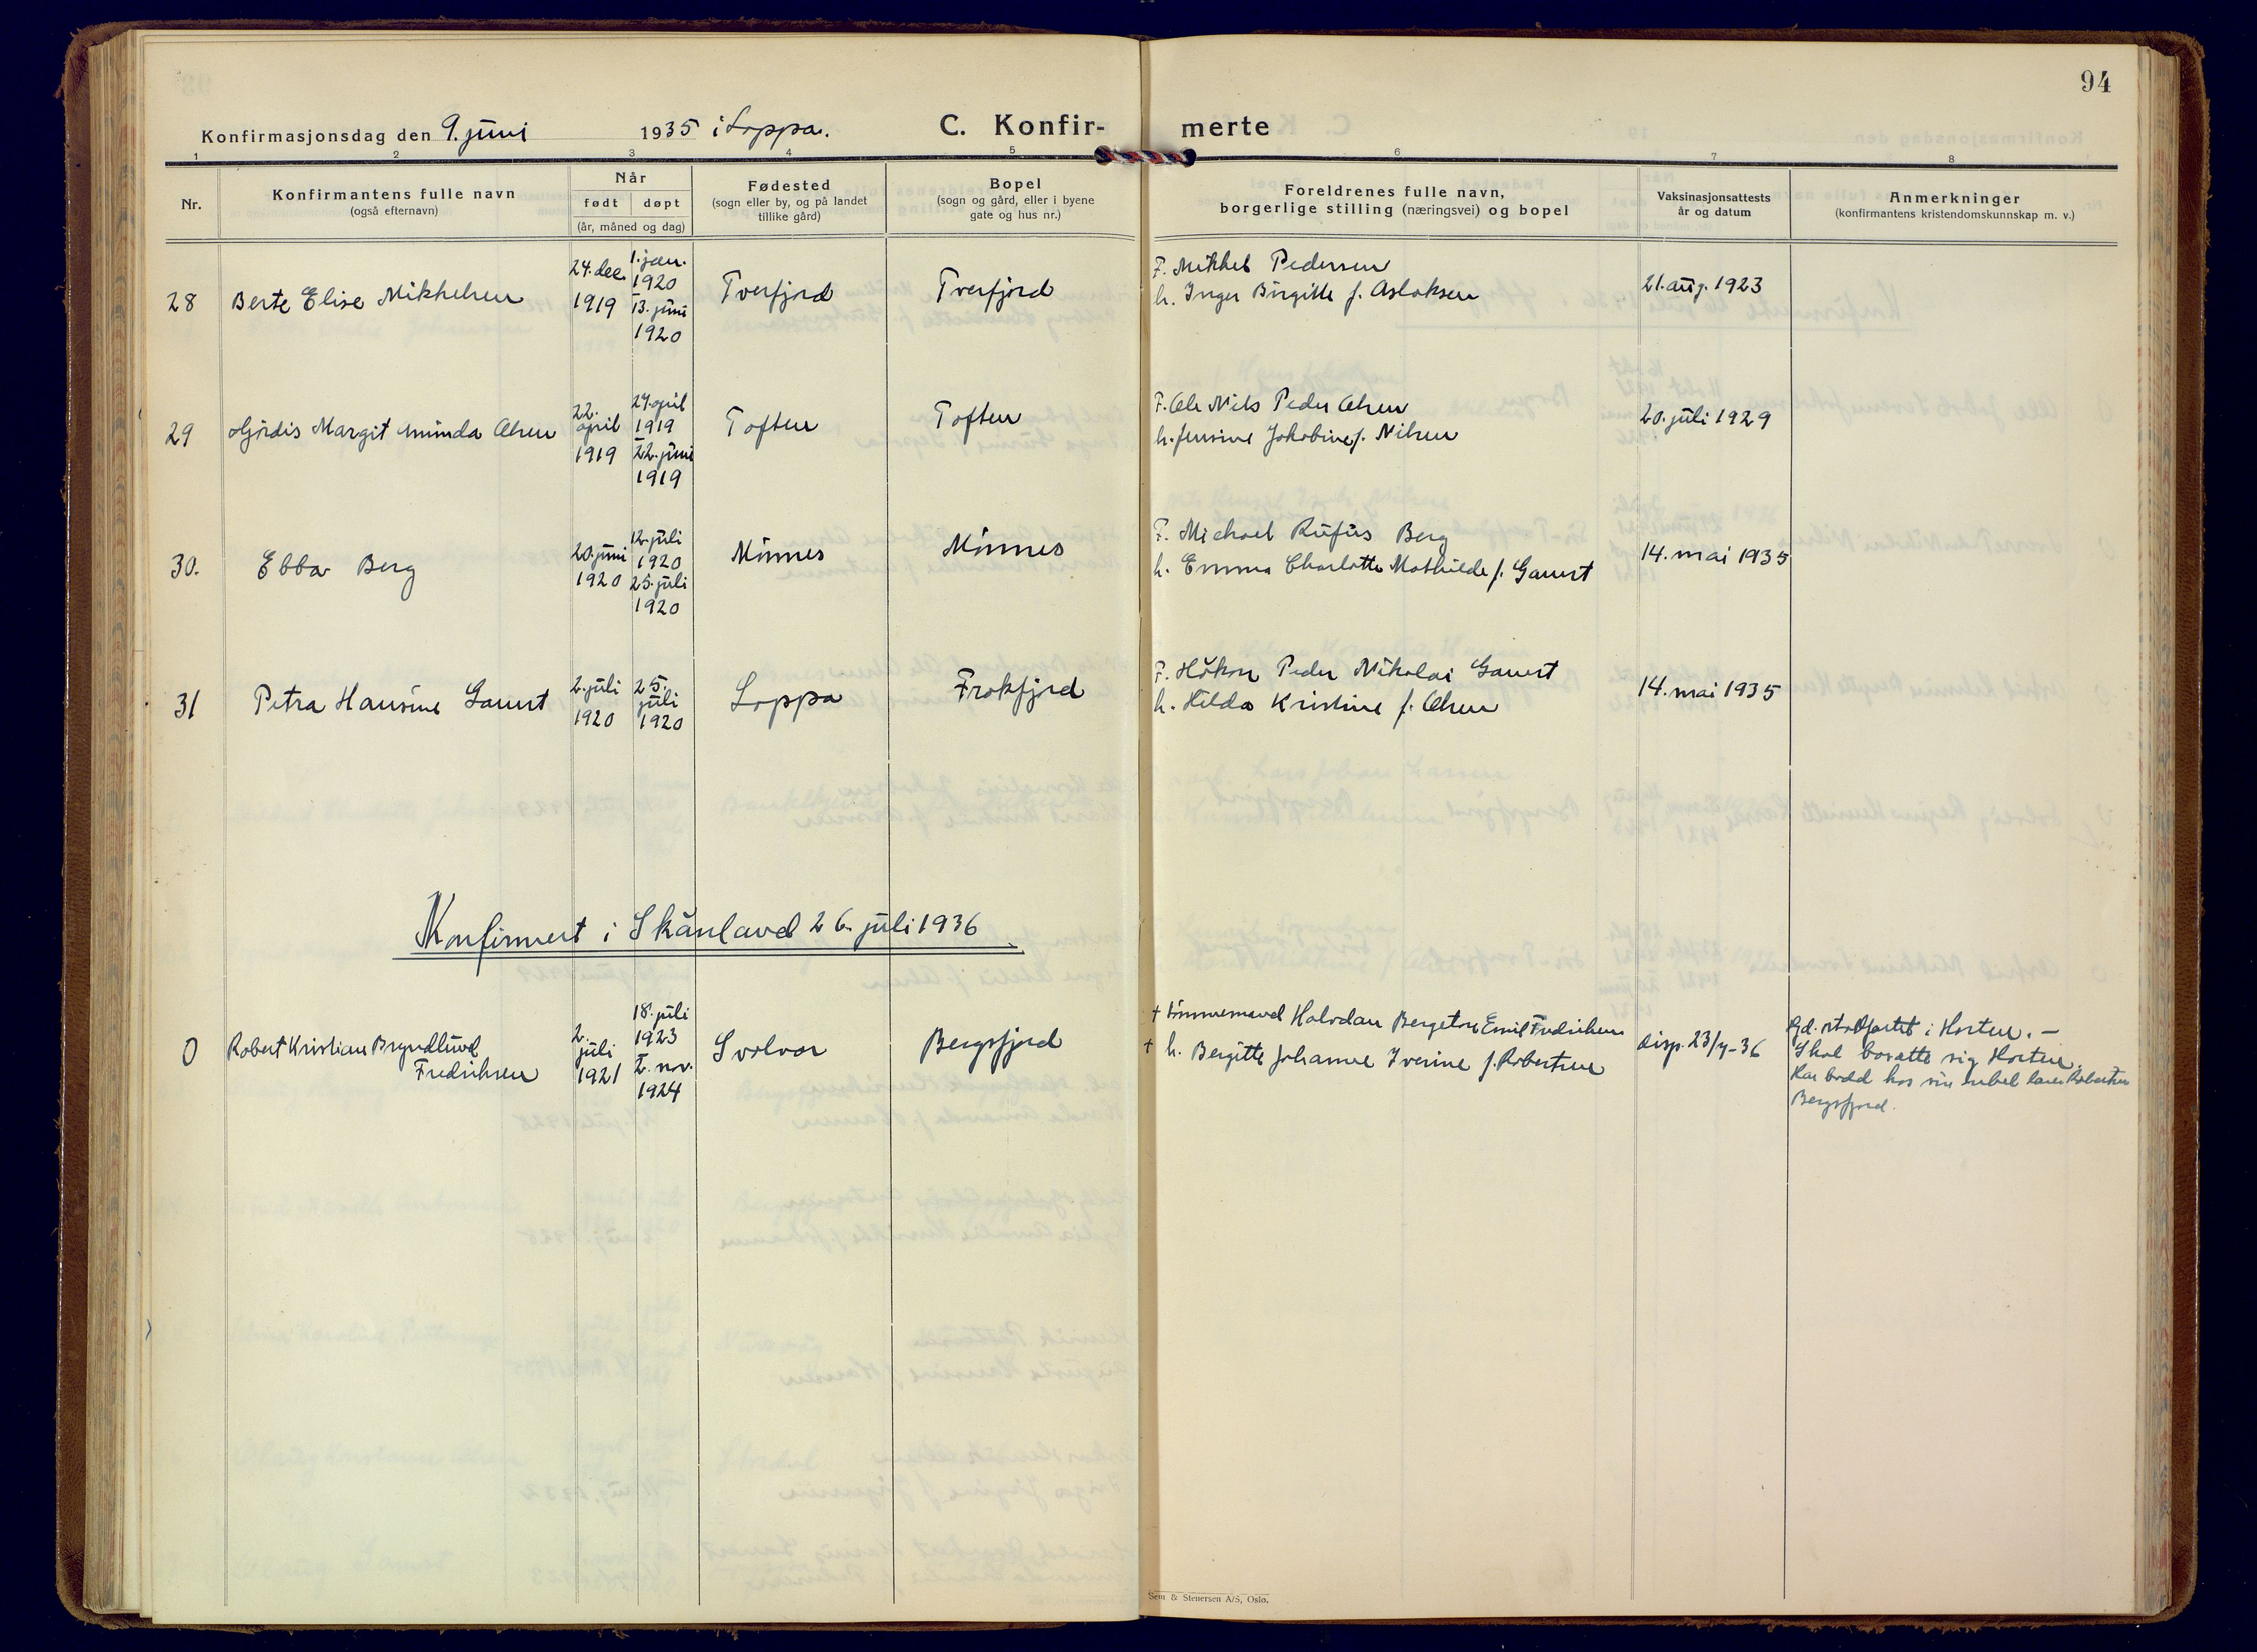 94
Konfirmasjonsdag den 9. juni 1935 i Loppa. C. Konfir- merte
1 2 3 4 5 6 7 8
Nr.
Konfirmantens fulle navn
(også efternavn)
Når
født døpt
(år, måned og dag)
Fødested
(sogn eller by, og på landet
tillike gård)
Bopel
(sogn og gård, eller i byene
gate og hus nr.)
Foreldrenes fulle navn,
borgerlige stilling (næringsvei) og bopel
Vaksinasjonsattests
år og datum
Anmerkninger
(konfirmantens kristendomskunnskap m. v.)
28 Berte Elise Mikkelsen
24. dec.
1919
1. jan.
1920
I
13. juni
1920
Tverfjord
Tverfjord
F. Mikkel Pedersen
h. Inger Birgitte f. Aslaksen
21. aug. 1923
29 Hjördis Margit Aminda Olsen
22.
april
1919
24. april
1919
I
22. juni
1919
Toften
Toften
F. Ole Nils Peder Olsen
h. Jensine Jakobine f. Nilsen
20. juli 1929
30. Ebba Berg
20. juni
1920
12. juli
1920
25. juli
1920
Minnes
Minnes
F. Michael Rufus Berg
h. Emma Charlotte Mathilde f. Gamst
14. mai 1935
31 Petra Hansine Gamst
2. juli
1920
25.
juli
1920
Loppa
Frakfjord
F. Håkon Peder Nikolai Gamst
h. Hilda Kristine f. Olsen
14. mai 1935
Konfirmert i Skånland 26. juli 1936
0 Robert Kristian Bryndlund
Fredriksen
2.
juli
1921
18. juli
1923
I
2. nov.
1924
Svolvær
Bergsfjord
† tömmermand Halvdan Bergeton Emil Fredriksen
† h. Bergitte Johanne Iverine f. Robertsen
disp. 23/4-36
i Horten. —
Skal bosætte sig Horten.
Har bodd hos sin onkel Lars Robertsen
Bergsfjord.
Sem & Stenersen A/S, Oslo.